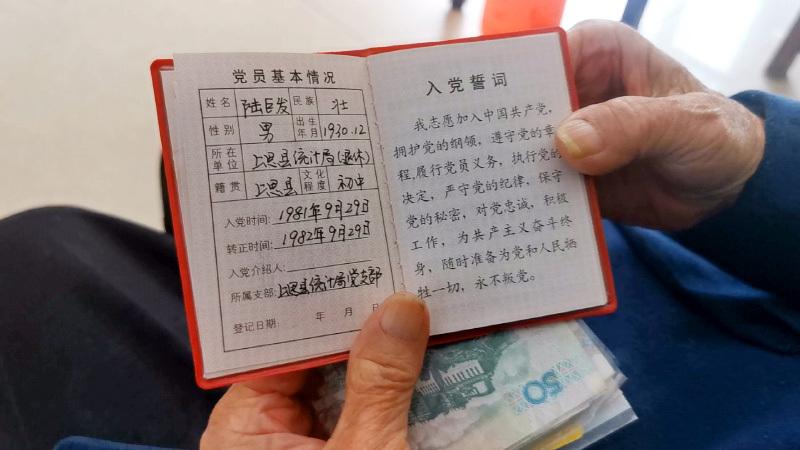 党员基本情况
姓名 陆巨发 民族 壮
性别 男 出生年月 1930.12
所在单位 上思县统计局(退休)
籍贯 上思县 文化程度 初中
入党时间: 1981年9月29日
转正时间: 1982年9月29日
入党介绍人:
所属支部: 上思县统计局党支部
登记日期: 年 月 日
入党誓词
我志愿加入中国共产党,
拥护党的纲领,遵守党的章
程,履行党员义务,执行党的
决定,严守党的纪律,保守
党的秘密,对党忠诚,积极
工作,为共产主义奋斗终
身,随时准备为党和人民牺
牲一切,永不叛党。
50